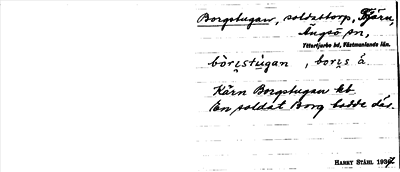 Borgstugan, soldattorp, Kjärn,
Ängsö sn,
Yttertjurbo hd, Västmanlands län.
bòrcstùgan , borcs á
Kärn Borgstugan kb
En soldat Borg bodde där.
HARRY STÅHL 1937